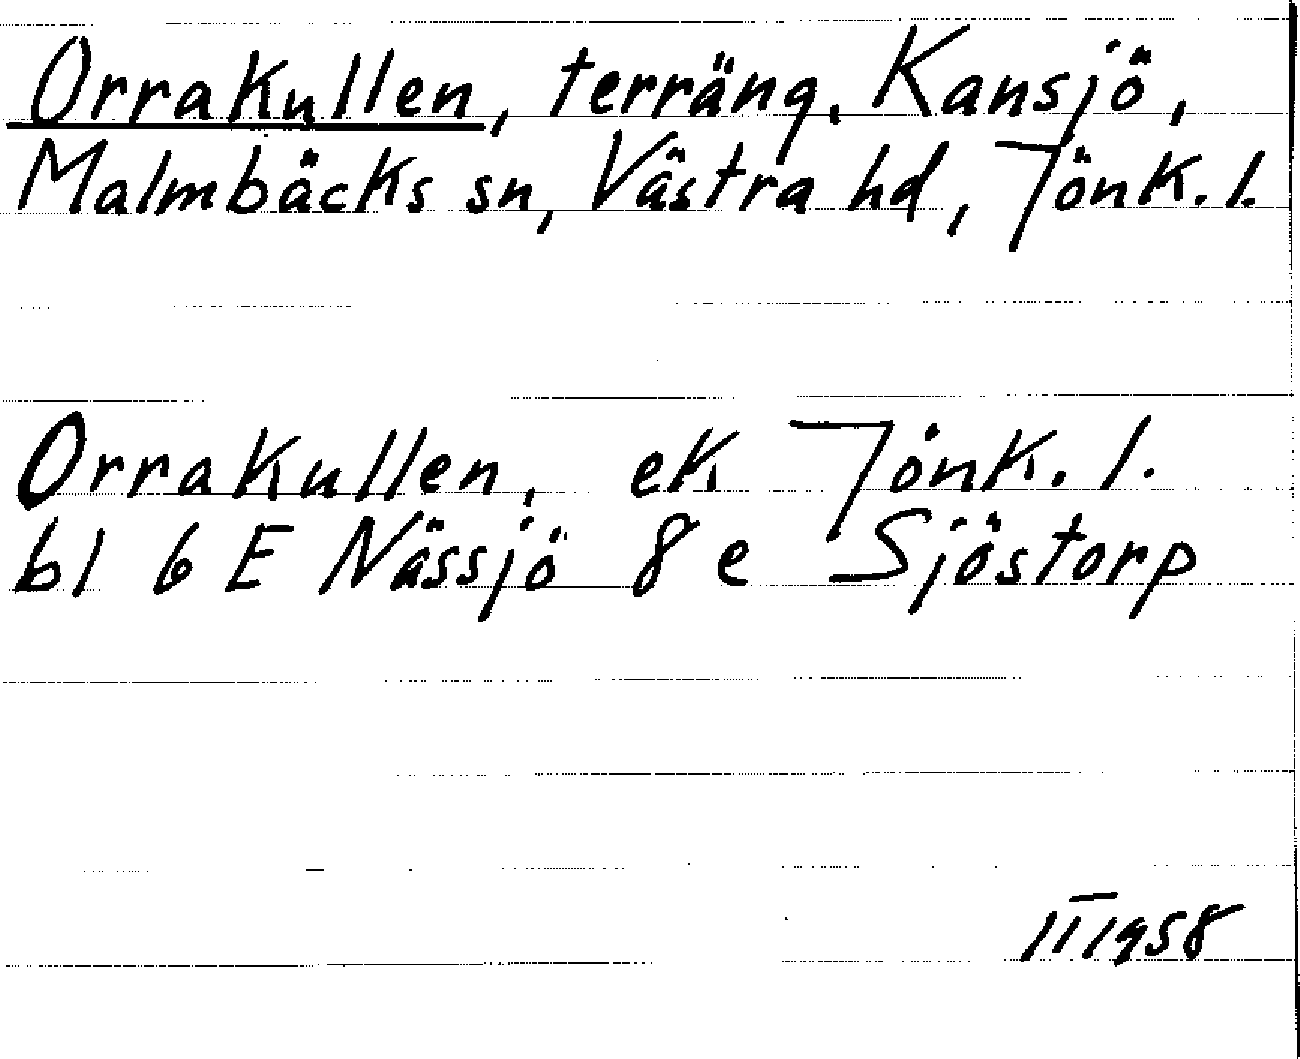 Orrakullen, terräng, Kansjö,
Malmbäcks sn, Västra hd, Jönk. l.
Orrakullen, ek Jönk. l.
bl 6 E Nässjö 8 e Sjöstorp
II 1958